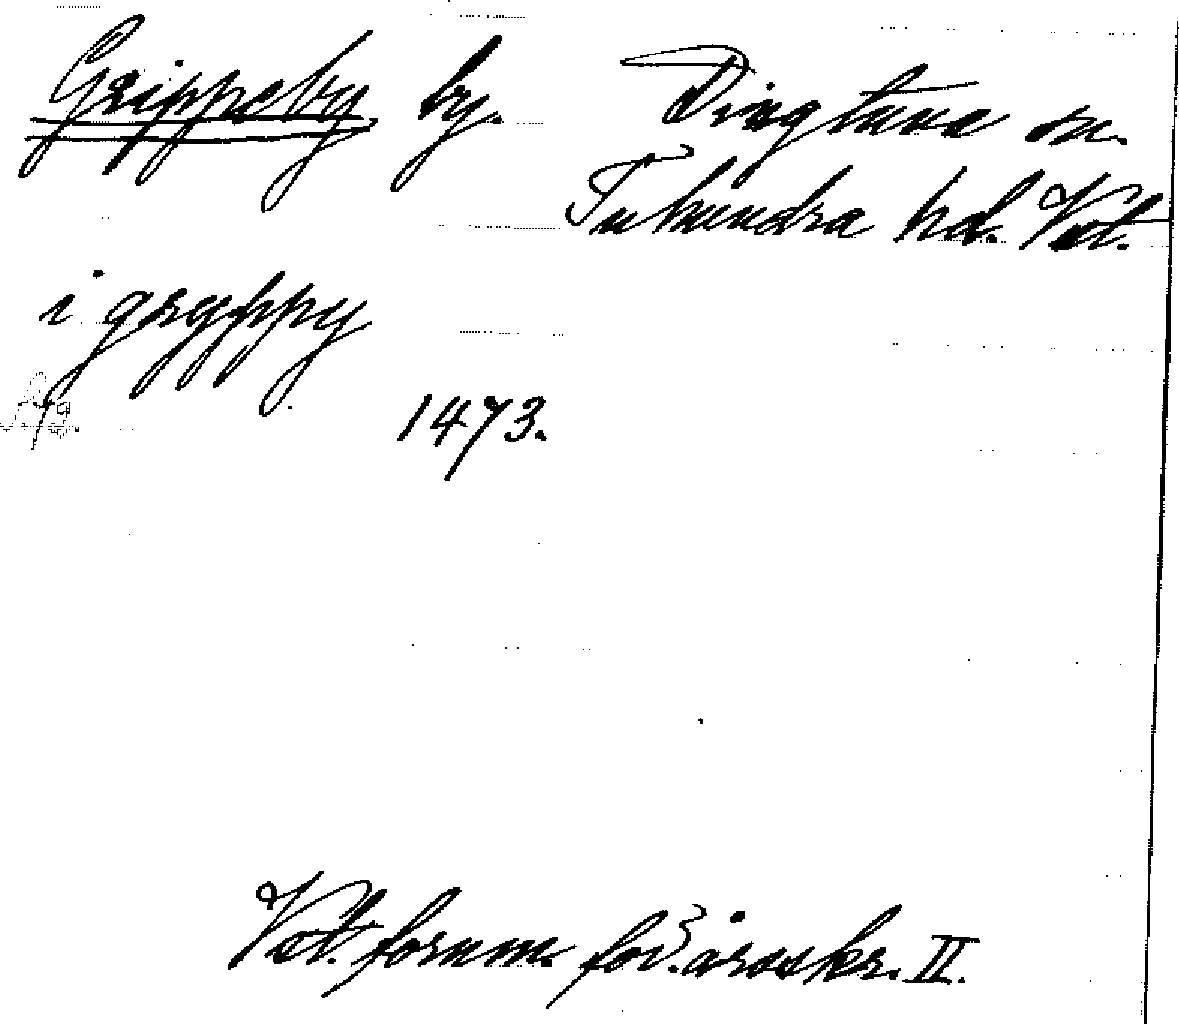 Grippeby by. Dingtuna sn.
Tuhundra hd. Vstl.
i gryppy
1473.
Vstl. fornm. för. årsskr. II.